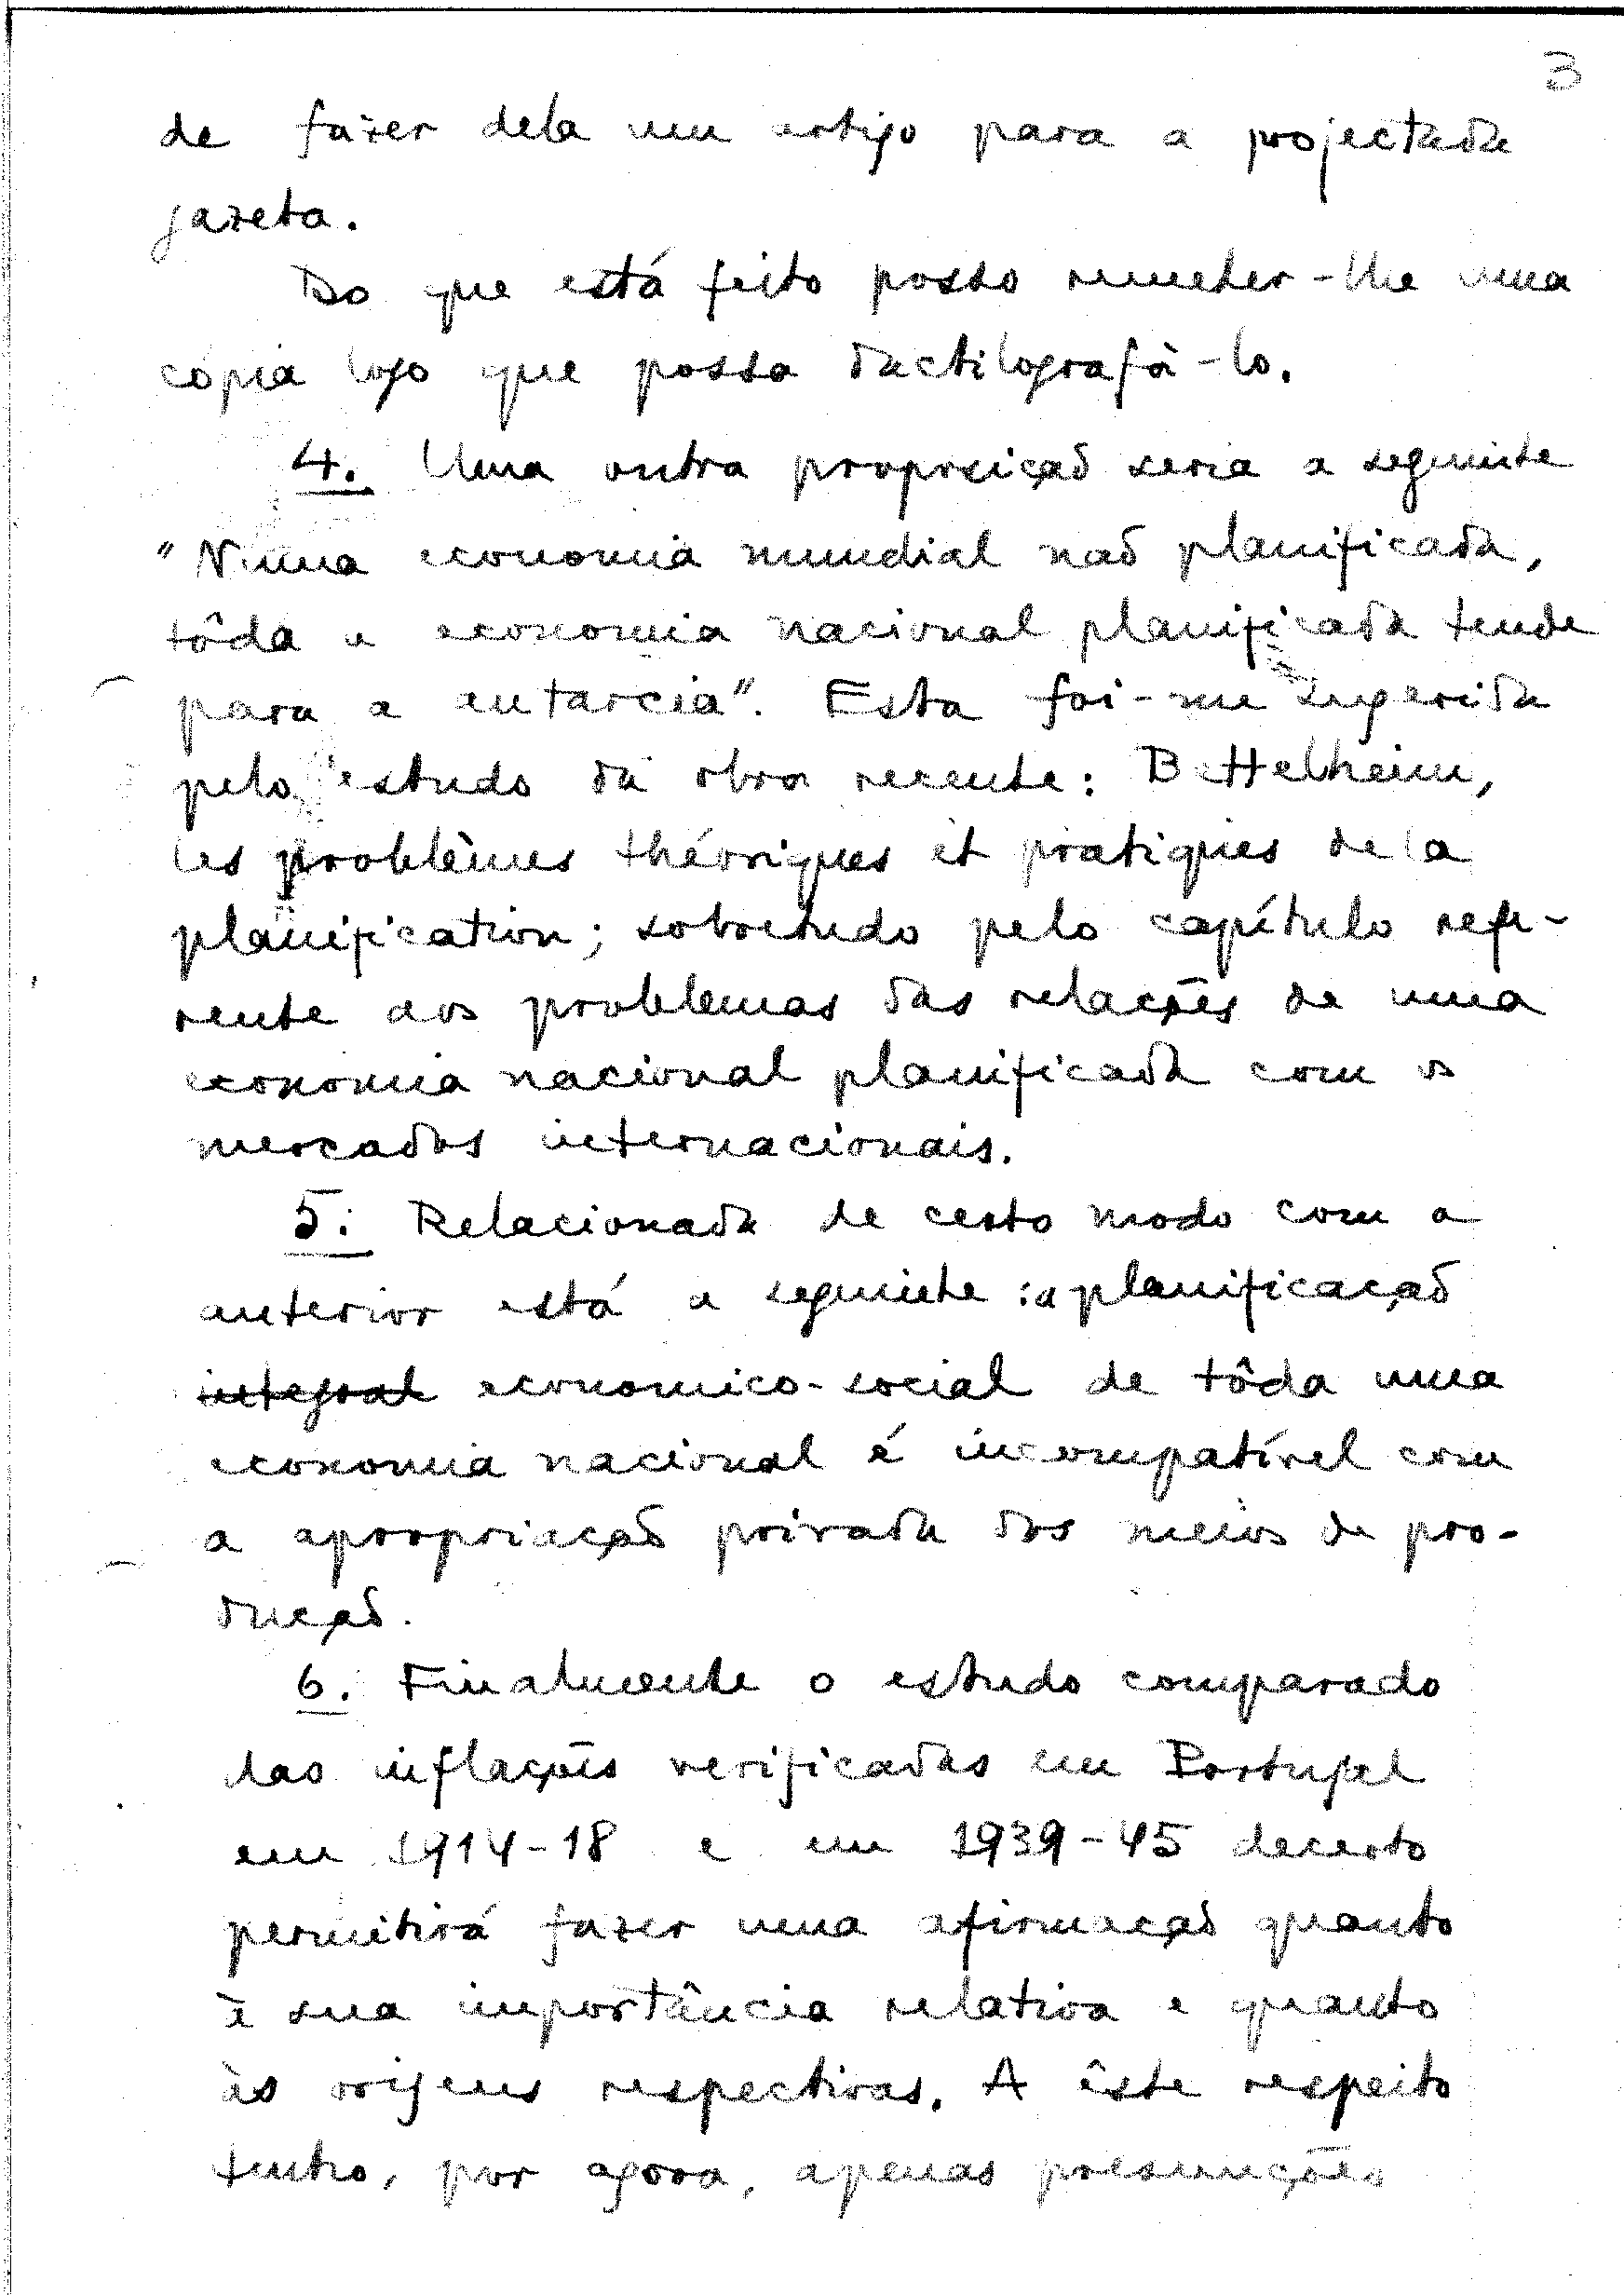 3
de fazer dela um artigo para a projectada
gazeta.
Do que está feito posso remeter-lhe uma
cópia logo que possa dactilografá-lo.
4. Uma outra proposição seria a seguinte
"Numa economia mundial não planificada,
tôda a economia nacional planificada tende
para a autarcia". Esta foi-me sugerida
pelo estudo da obra recente: Bettelheim,
les problèmes théoriques et pratiques de la
planification; sobretudo pelo capítulo refe-
rente aos problemas das relações de uma
economia nacional planificada com os
mercados internacionais.
5. Relacionada de certo modo com a
anterior está a seguinte: a planificação
integral economico-social de tôda uma
economia nacional é incompatível com
a apropriação privada dos meios de pro-
dução.
6. Finalmente o estudo comparado
das inflações verificadas em Portugal
em 1914-18 e em 1939-45 decerto
permitirá fazer uma afirmação quanto
à sua importância relativa e quanto
às origens respectivas. A êste respeito
tenho, por agora, apenas presunções